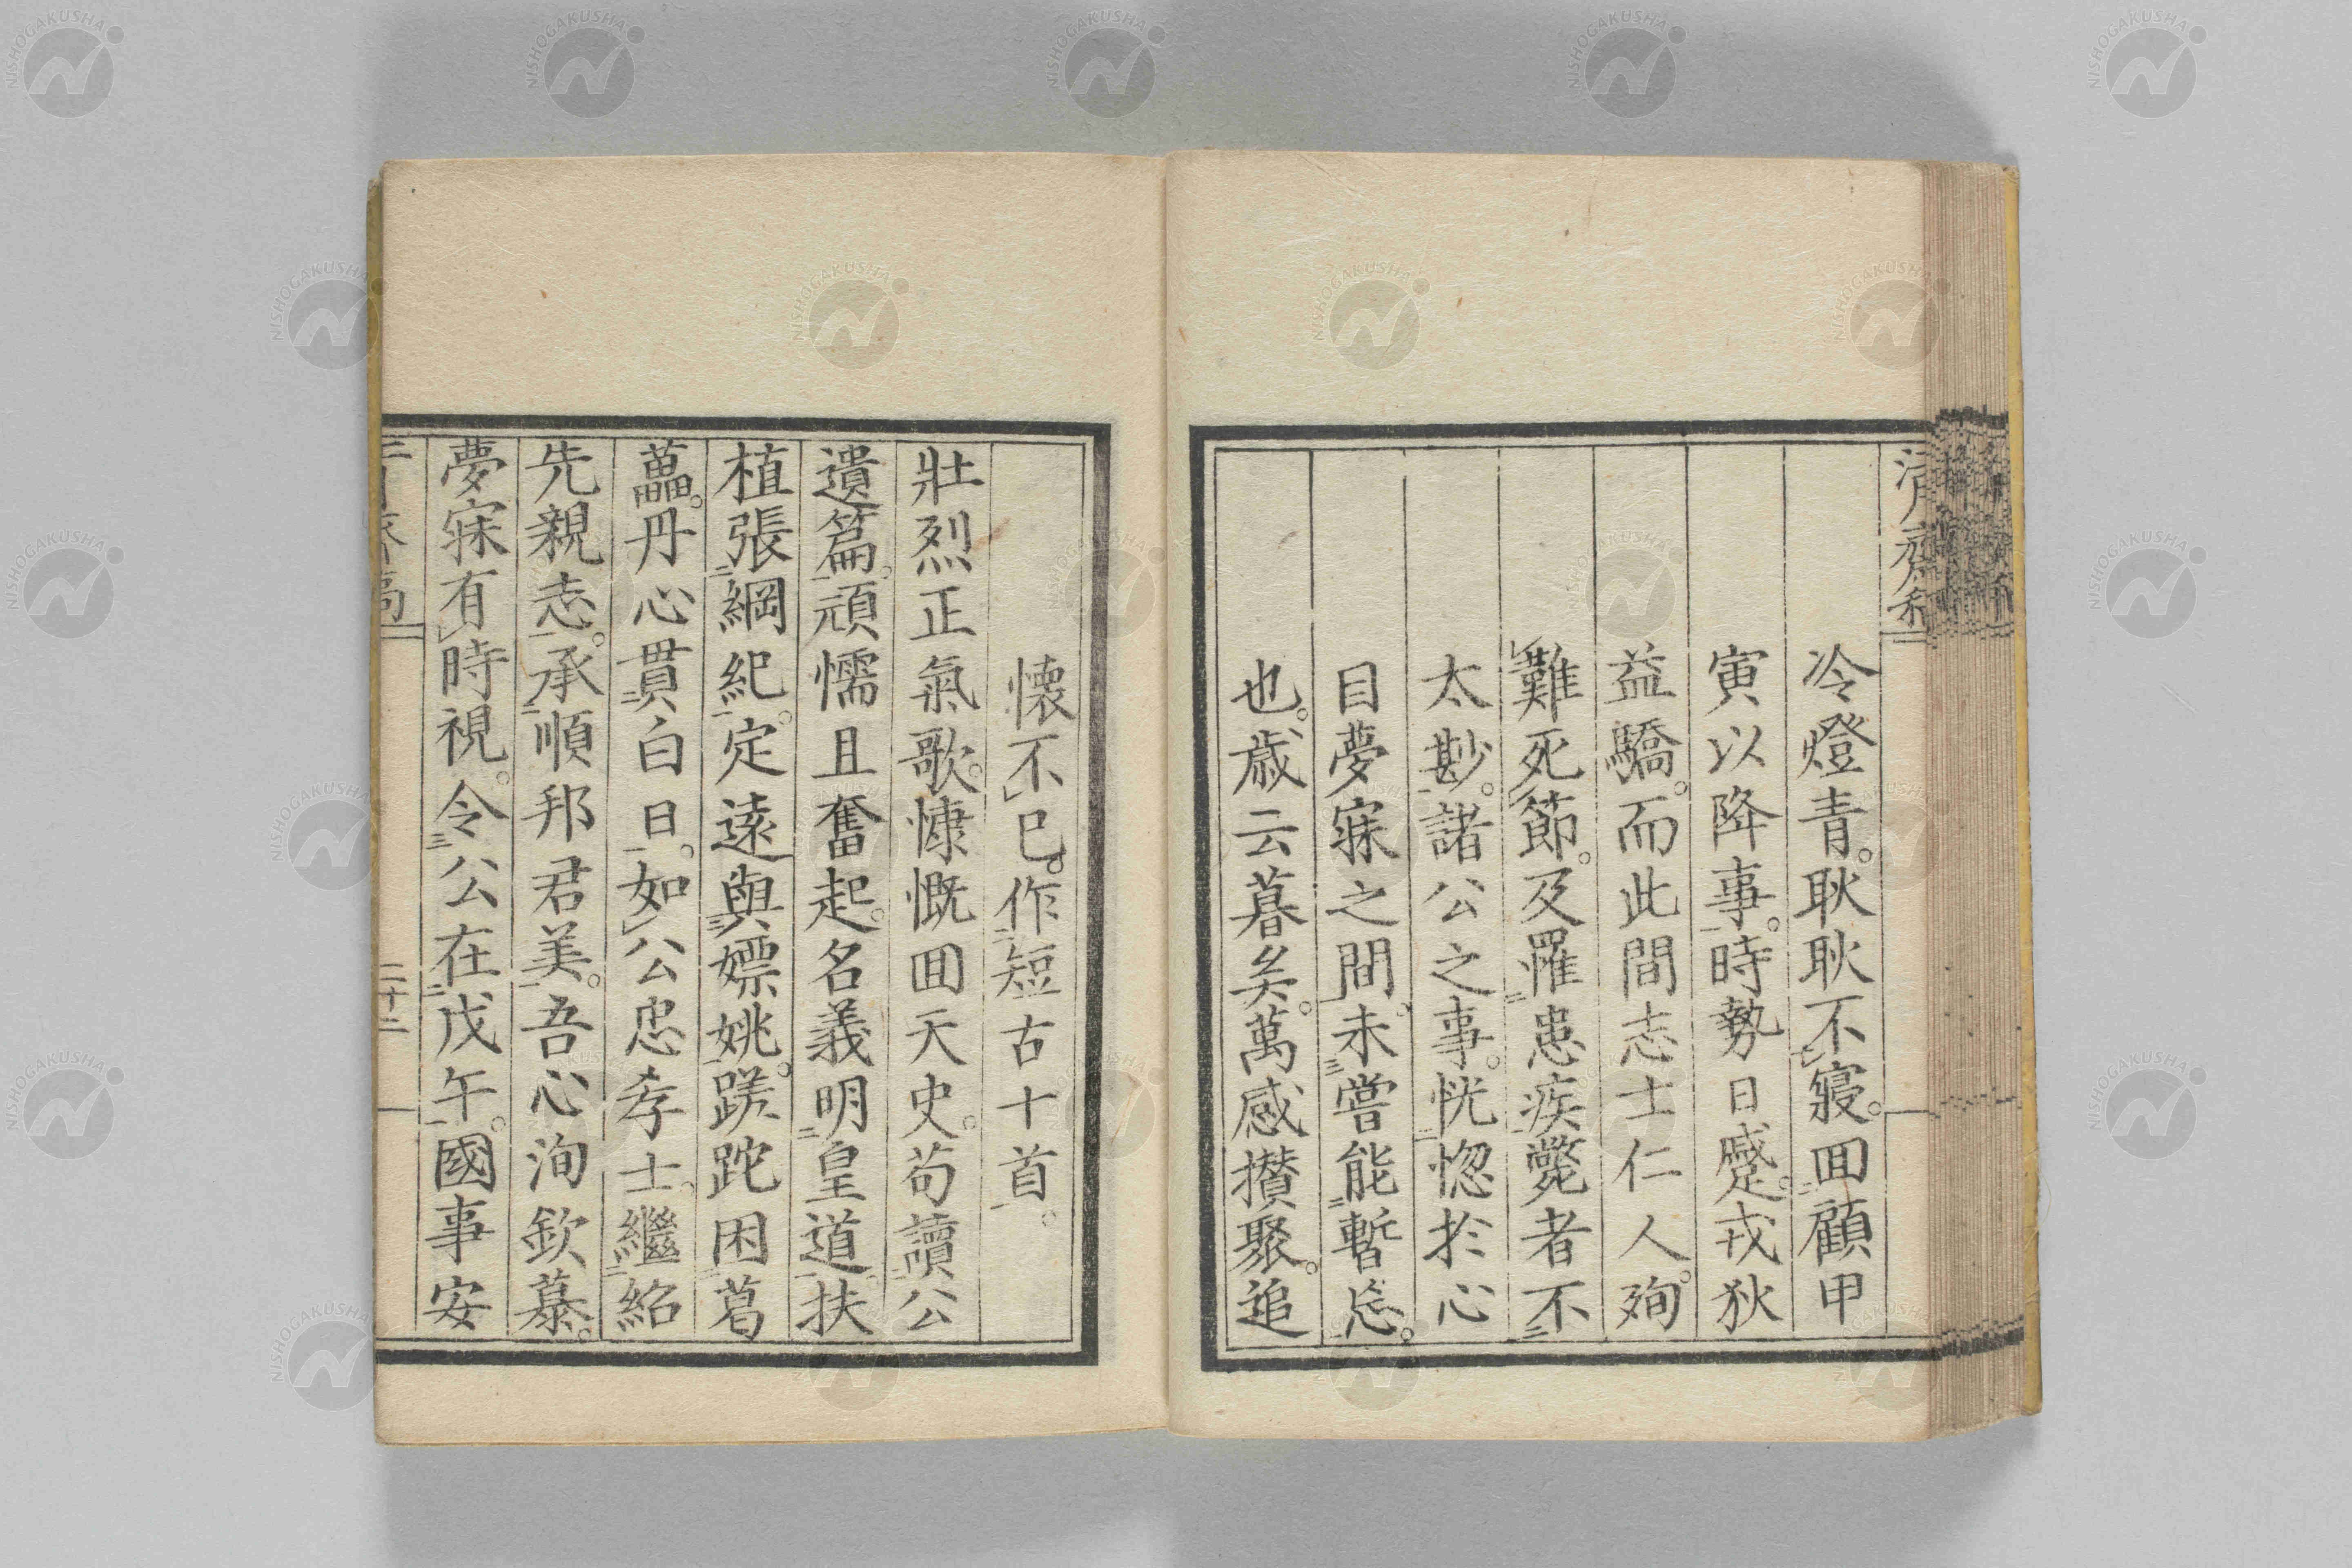 冷燈青。耿耿不寢。囬顧甲
寅以降事。時勢日蹙。戎狄
益驕。而此間志士仁人。殉
難死節。及罹患疾斃者不
太尠。諸公之事。恍惚於心
目夢寐之間。未嘗能暫忘。
也。歳云暮矣。萬感攅聚。追
懷不已。作短古十首。
壯烈正氣歌。慷慨囬天史。苟讀公
遺篇。頑懦且奮起。名義明皇道。扶
植張綱紀。定遠與嫖姚。蹉跎困葛
藟。丹心貫白日。如公忠孝士。繼紹
先親志。承順邦君美。吾心洵欽慕。
夢寐有時視。令公在戊午。國事安
二十二
NISHOGAKUSHA